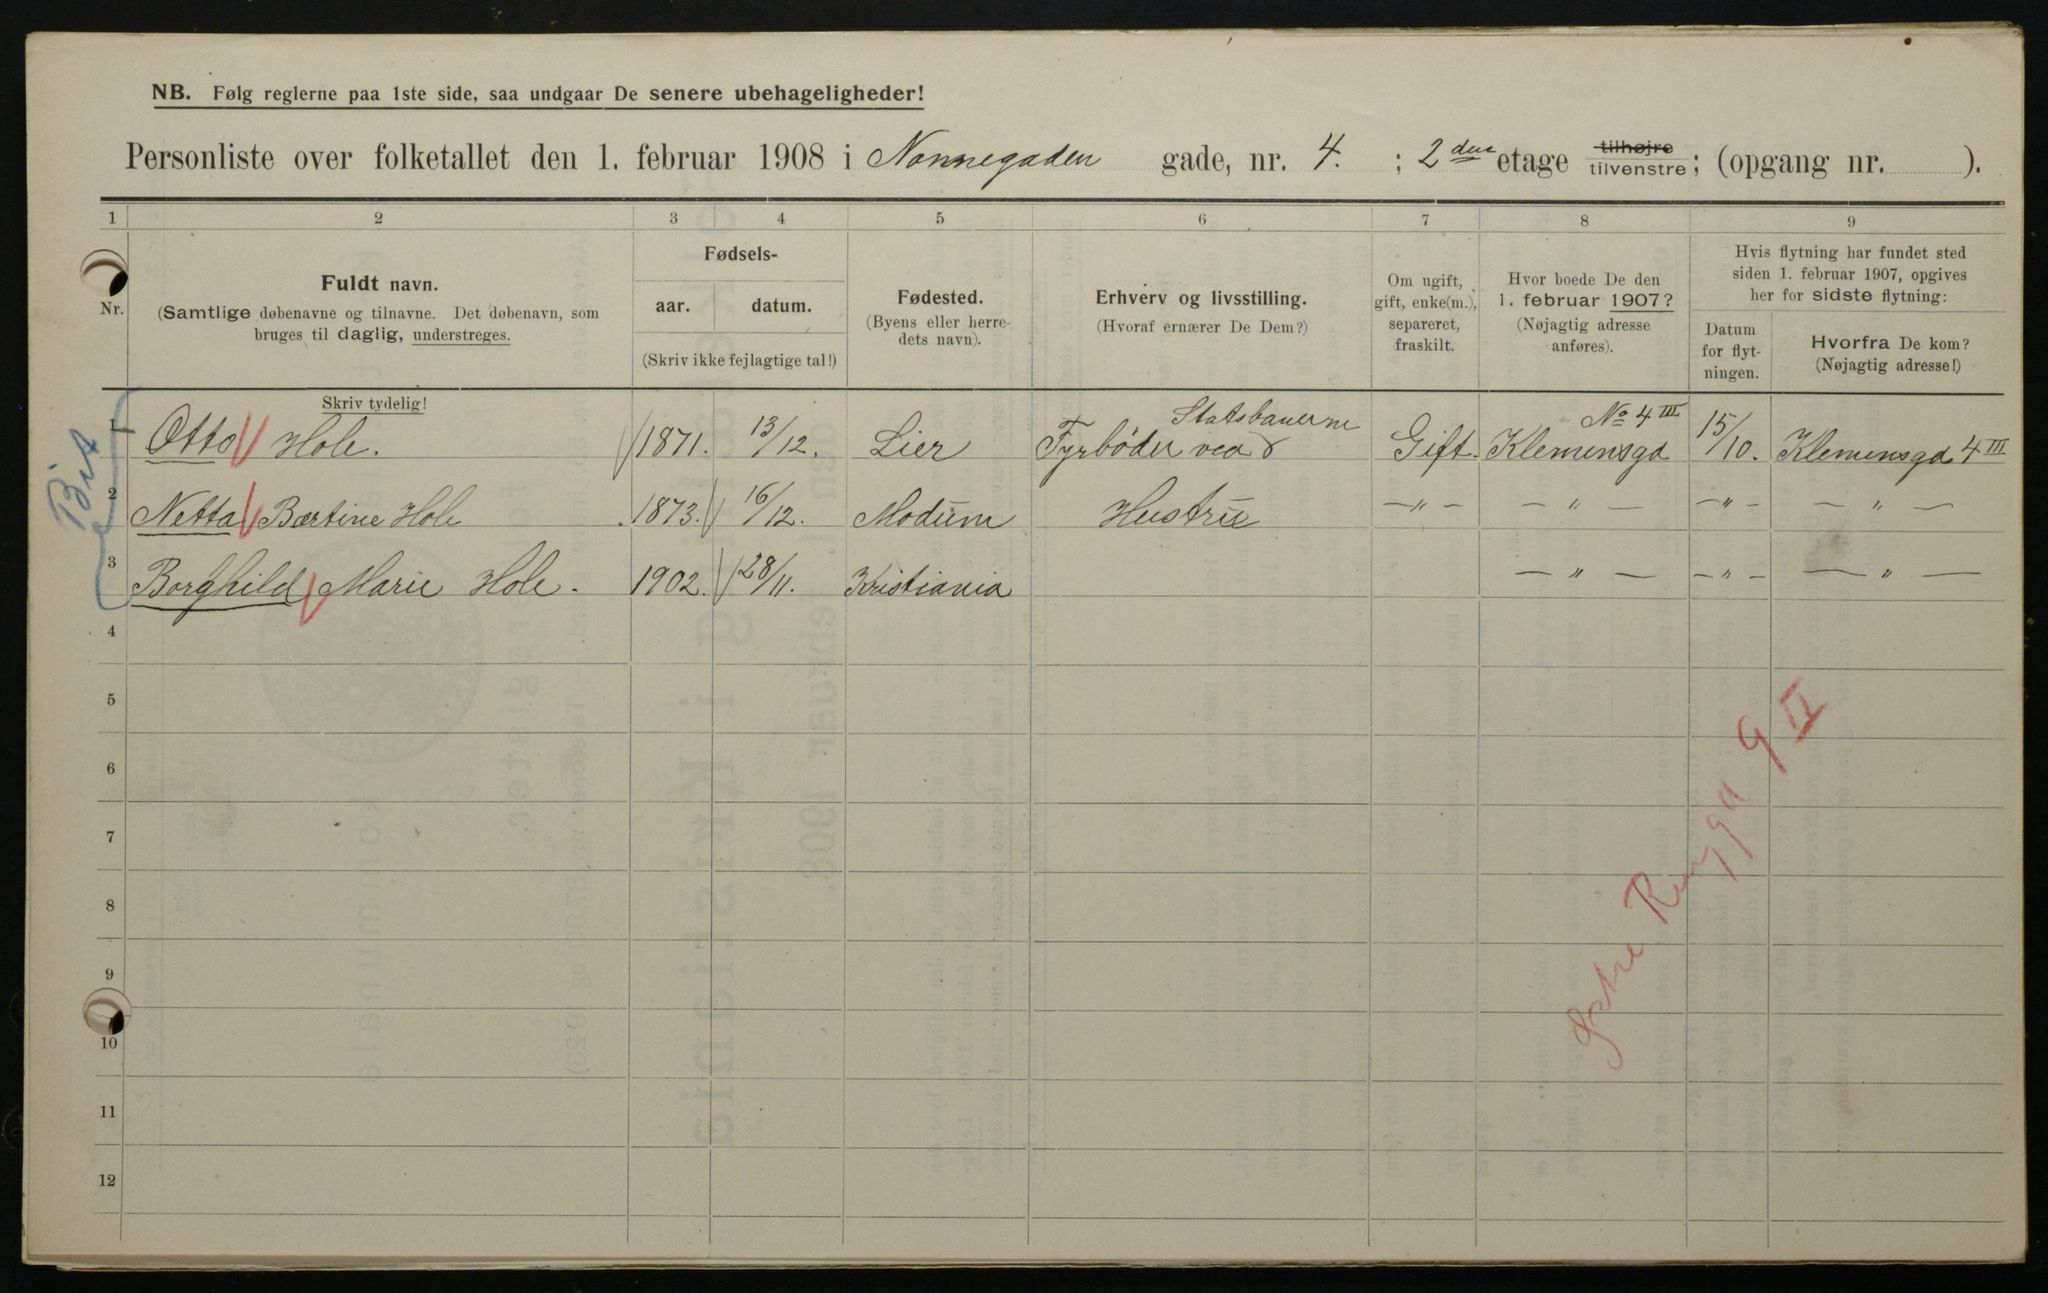 NB. Følg reglerne paa 1ste side, saa undgaar De senere ubehageligheder!
Personliste over folketallet den 1. februar 1908 i Nonnegaden gade, nr. 4. ; 2den etage tilhøjre tilvenstre; (opgang nr. ).
1 2 3 4 5 6 7 8 9
Nr.
Fuldt navn.
(Samtlige døbenavne og tilnavne. Det døbenavn, som
bruges til daglig, understreges.
Skriv tydelig!
Fødsels-
aar. datum.
(Skriv ikke fejlagtige tal!)
Fødested.
(Byens eller herre-
dets navn).
Erhverv og livsstilling.
(Hvoraf ernærer De Dem?)
Om ugift,
gift, enke(m.),
separeret,
fraskilt.
Hvor boede De den
1. februar 1907?
(Nøjagtig adresse
anføres).
Hvis flytning har fundet sted
siden 1. februar 1907, opgives
her for sidste flytning:
Datum
for flyt-
ningen.
Hvorfra De kom?
(Nøjagtig adresse!)
Statsbanerne No 4 III
1 Otto Hole. 1871. 13/12. Lier Fyrbøder ved Gift. Klemensgd 15/10. Klemensgd 4 III
2 Netta Bertine Hole 1873. 16/12. Modum Hustru —„— — „ — —„— — „ —
3 Borghild Marie Hole. 1902. 28/11. Kristiania — „ — —„— — „ —
4
5
6
7
8
9
10
11
12
9 II